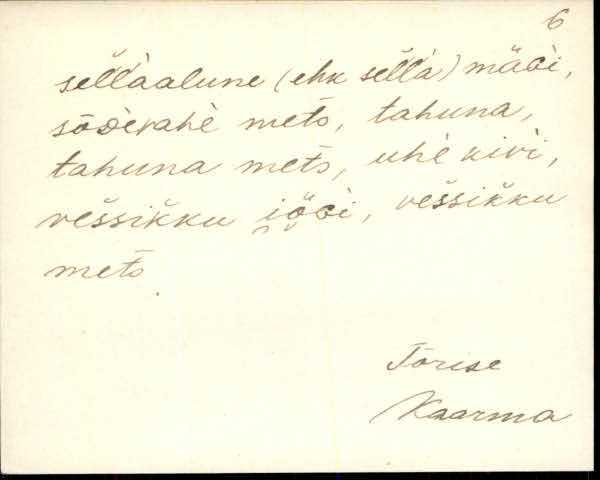 6
sel̆l̆àalune (ehk sel̆l̆à) mäɢì,
sōᴅèvahè mets̆, tahuna,
tahuna mets̆, uhè kivì,
vešsik̆ku i̯ö̬ɢì, vešsik̆ku
mets̆.
Tōrise
Kaarma